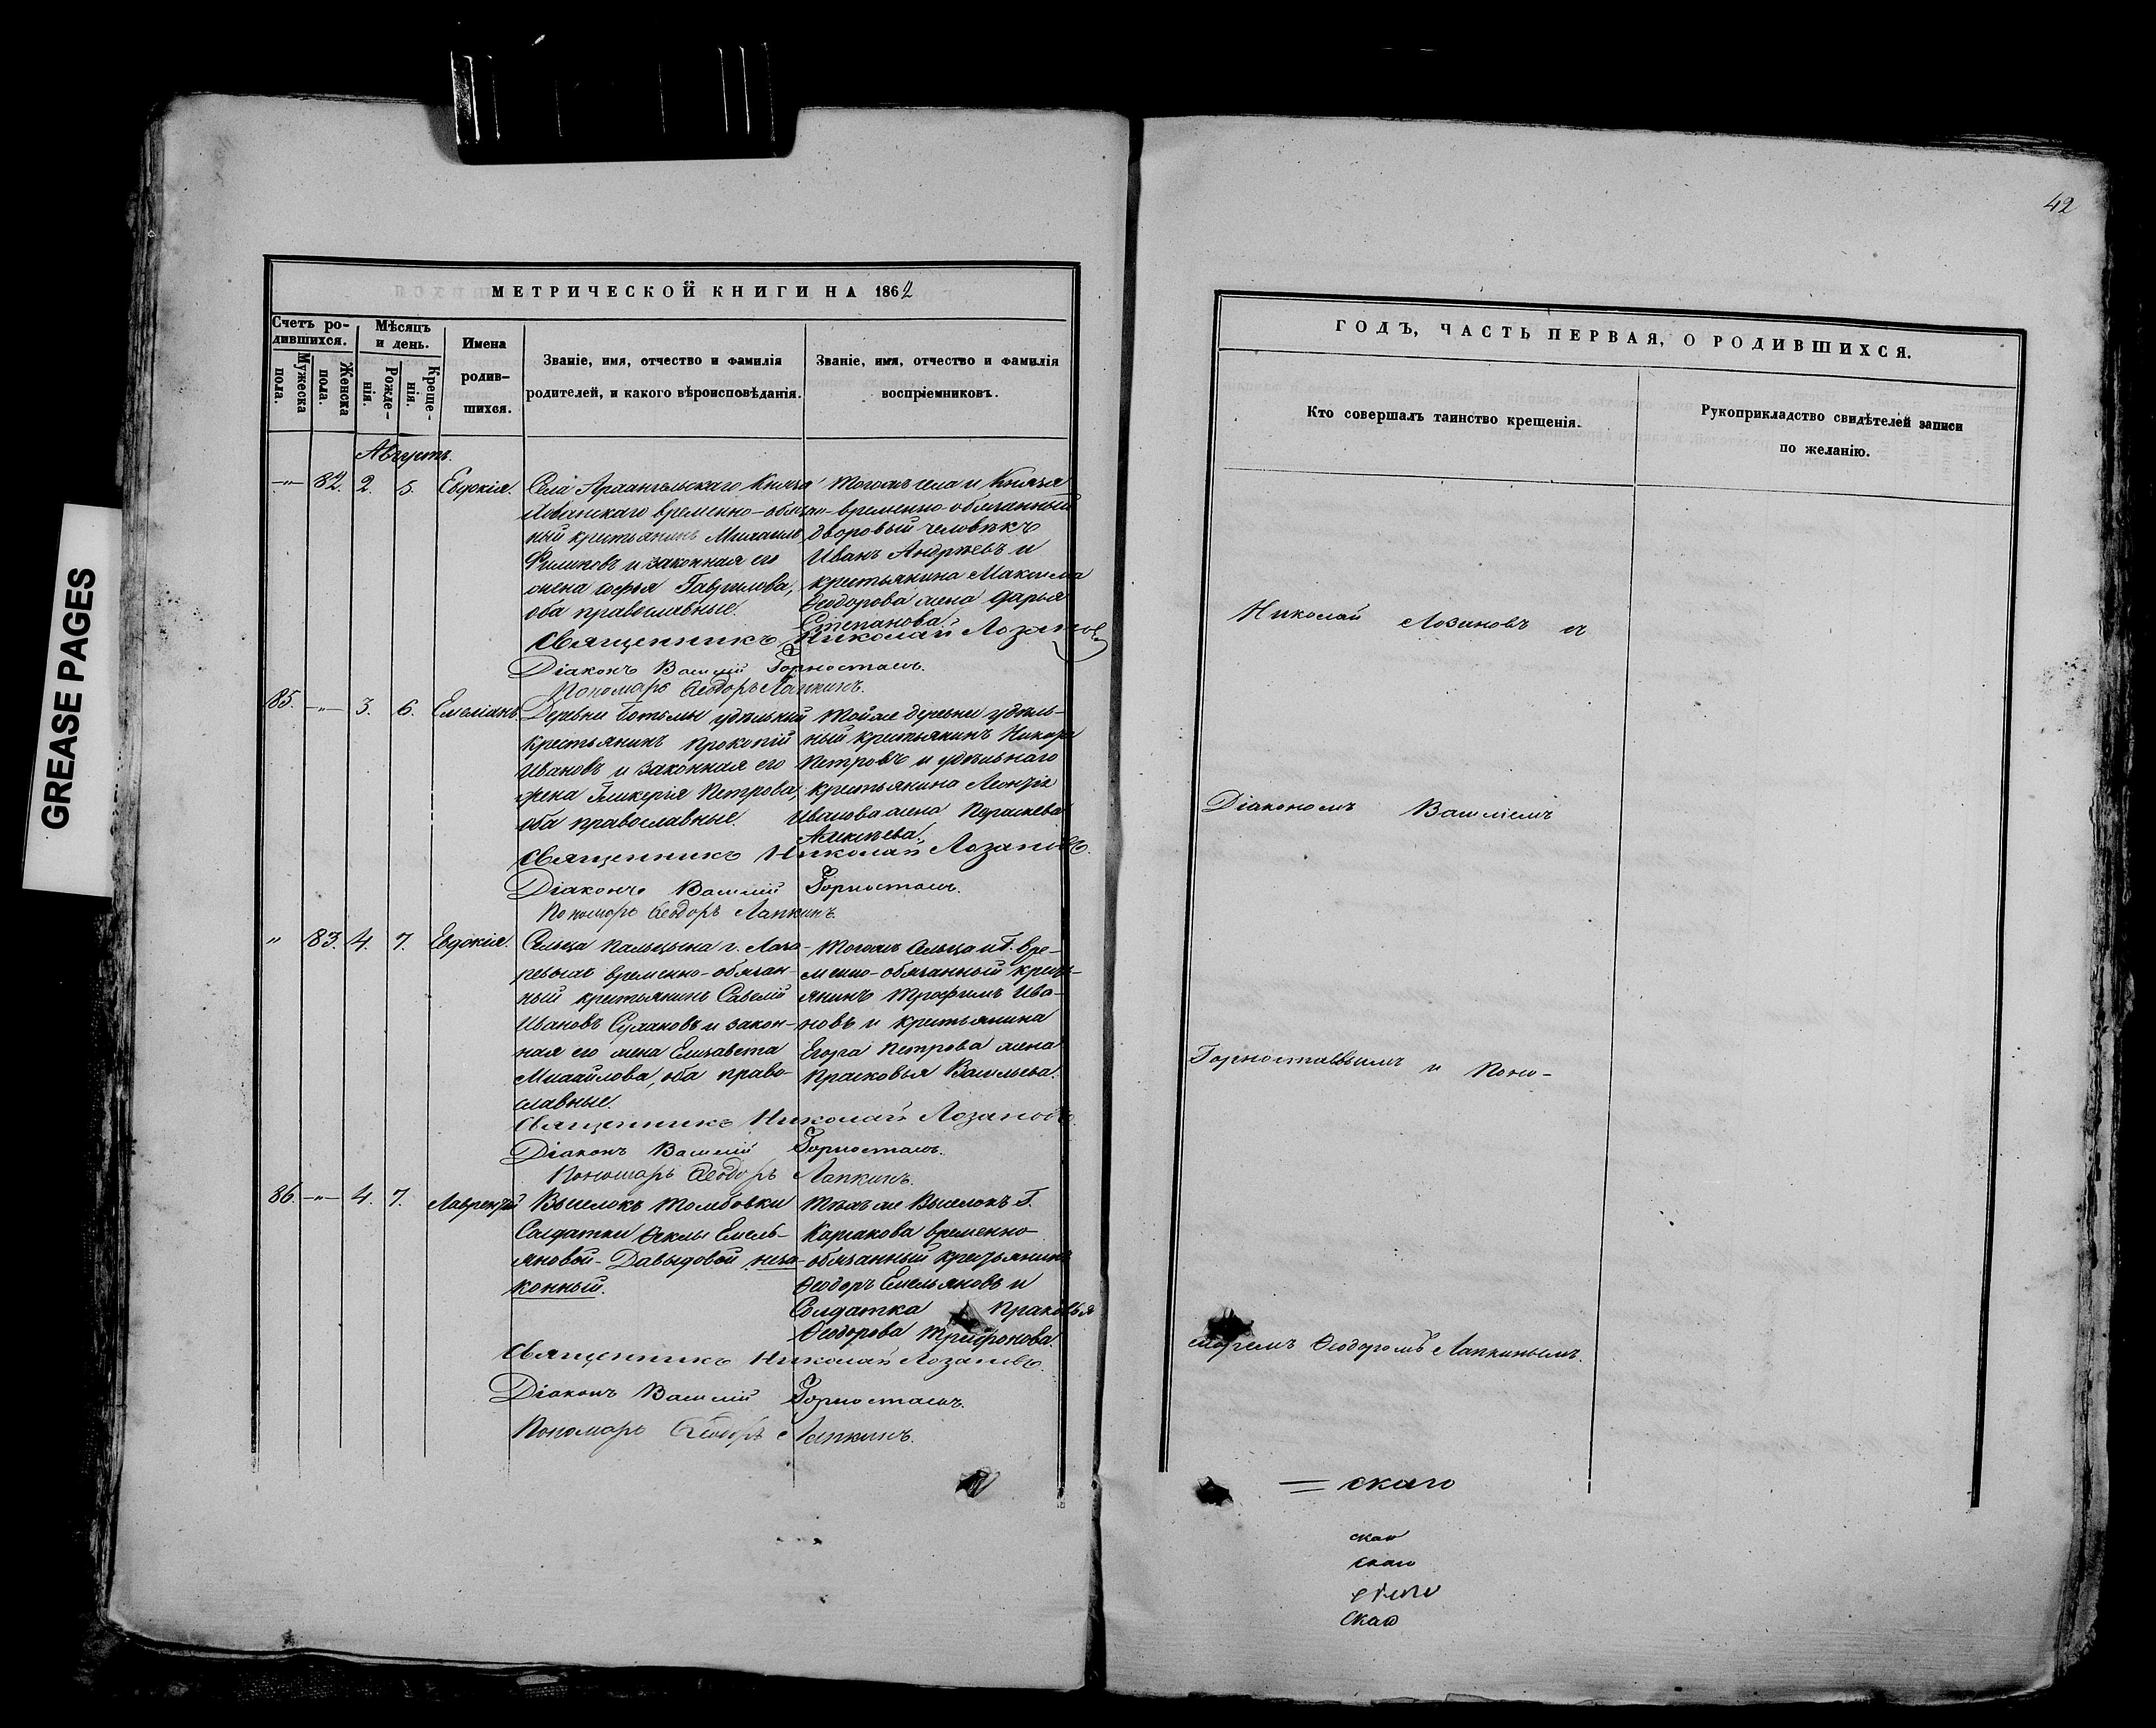 GREASE PAGES
42
МЕТРИЧЕСКОЙ КНИГИ НА 1862
Счетъ ро-
дившихся.
Мужеска
пола.
Женска
пола.
Мѣсяцъ
и день.
Рожде-
нія.
Креще-
нія.
Имена
родив-
шихся.
Званіе, имя, отчество и фамилія
родителей, и какого вѣроисповѣданія.
Званіе, имя, отчество и фамилія
воспріемниковъ.
Августъ.
—„— 82. 2. 5. Евдокія.
Села Архангельскаго Князя
временно-обязан-
ный крестьянинъ Михаилъ
Филиповъ и законная его
жена Софья Гаврилова,
оба православные.
Тогожъ села и Князя
временно-обязанный
дворовый человѣкъ
Иванъ Андреевъ и
крестьянина Максима
Ѳеодорова жена Дарья
Степанова.
Священникъ Николай Лозановъ
Діаконъ Василій Горностаевъ.
Пономарь Ѳеодоръ Лапкинъ.
85. —„— 3. 6. Емеліанъ.
Деревни Ботьмы удѣльный
крестьянинъ Прокопій
Ивановъ и законная его
жена Гликерія Петрова,
оба православные.
Тойже деревни удѣль-
ный крестьянинъ
Петровъ и удѣльнаго
крестьянина Леонтія
Иванова жена
Алексѣева.
Священникъ Николай Лозановъ.
Діаконъ Василій Горностаевъ.
Пономарь Ѳеодоръ Лапкинъ.
„ 83. 4. 7. Евдокія.
Сельца Пальцына г. Лаза-
ревыхъ временно-обязан-
ный крестьянинъ Савелій
Ивановъ и закон-
ная его жена Елизавета
Михайлова, оба право-
славные.
Тогожъ Сельца и Г. вре-
менно-обязанный кресть-
янинъ Трофимъ Ива-
новъ и крестьянина
Егора Петрова жена
Прасковья Васильева.
Священникъ Николай Лозановъ.
Діаконъ Василій Горностаевъ.
Пономарь Ѳеодоръ Лапкинъ.
86. —„— 4. 7. Лаврентій
Выселокъ Толбовки
Солдатки Ѳеклы Емель-
яновой-Давыдовой неза-
конный.
Тѣхъ же Выселокъ Г.
временно-
обязанный крестьянинъ
Ѳеодоръ Емельяновъ и
Солдатка Прасковья
Ѳеодорова Трифонова.
Священникъ Николай Лозановъ.
Діаконъ Василій Горностаевъ.
Пономарь Ѳеодоръ Лапкинъ.
ГОДЪ, ЧАСТЬ ПЕРВАЯ, О РОДИВШИХСЯ.
Кто совершалъ таинство крещенія.
Рукоприкладство свидѣтелей записи
по желанію.
Николай Лозановъ съ
Діакономъ Василіемъ
Горностаевымъ и Поно-
маремъ Ѳеодоромъ Лапкинымъ.
= скаго
скаго
скаго
Скаго